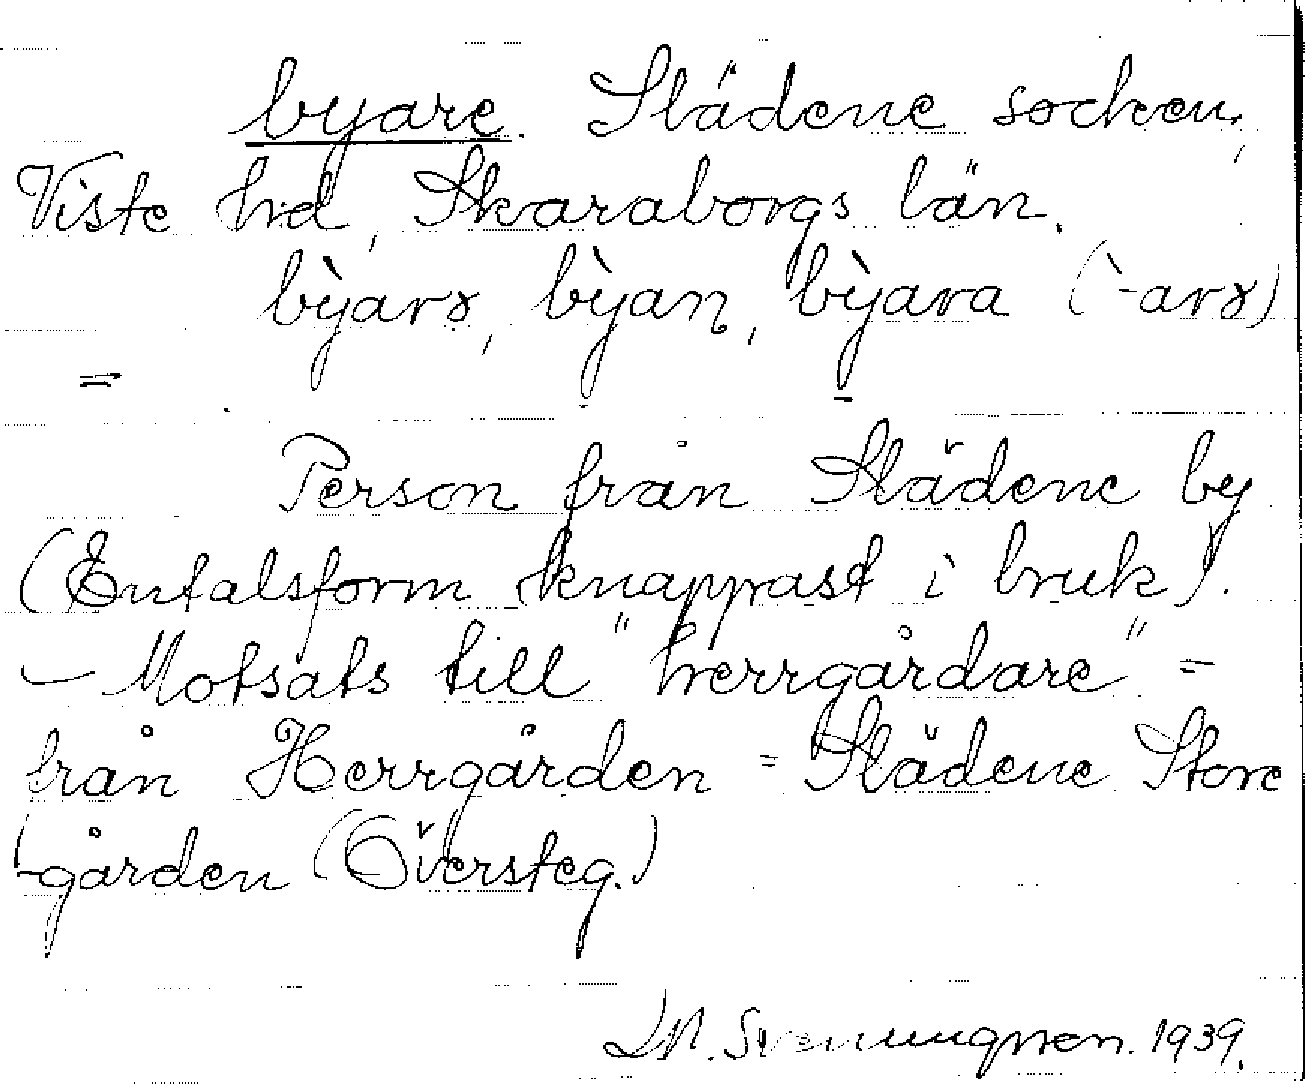 byare. Slädene socken,
Viste hrd, Skaraborgs län.
bỳarɤ, bỳan, bỳara (`-arɤ)
=
Person från Slädene by
(Entalsform knappast i bruk).
– Motsats till "herrgårdare" =
från Herrgården = Slädene Store
-gården (Översteg.)
1939.